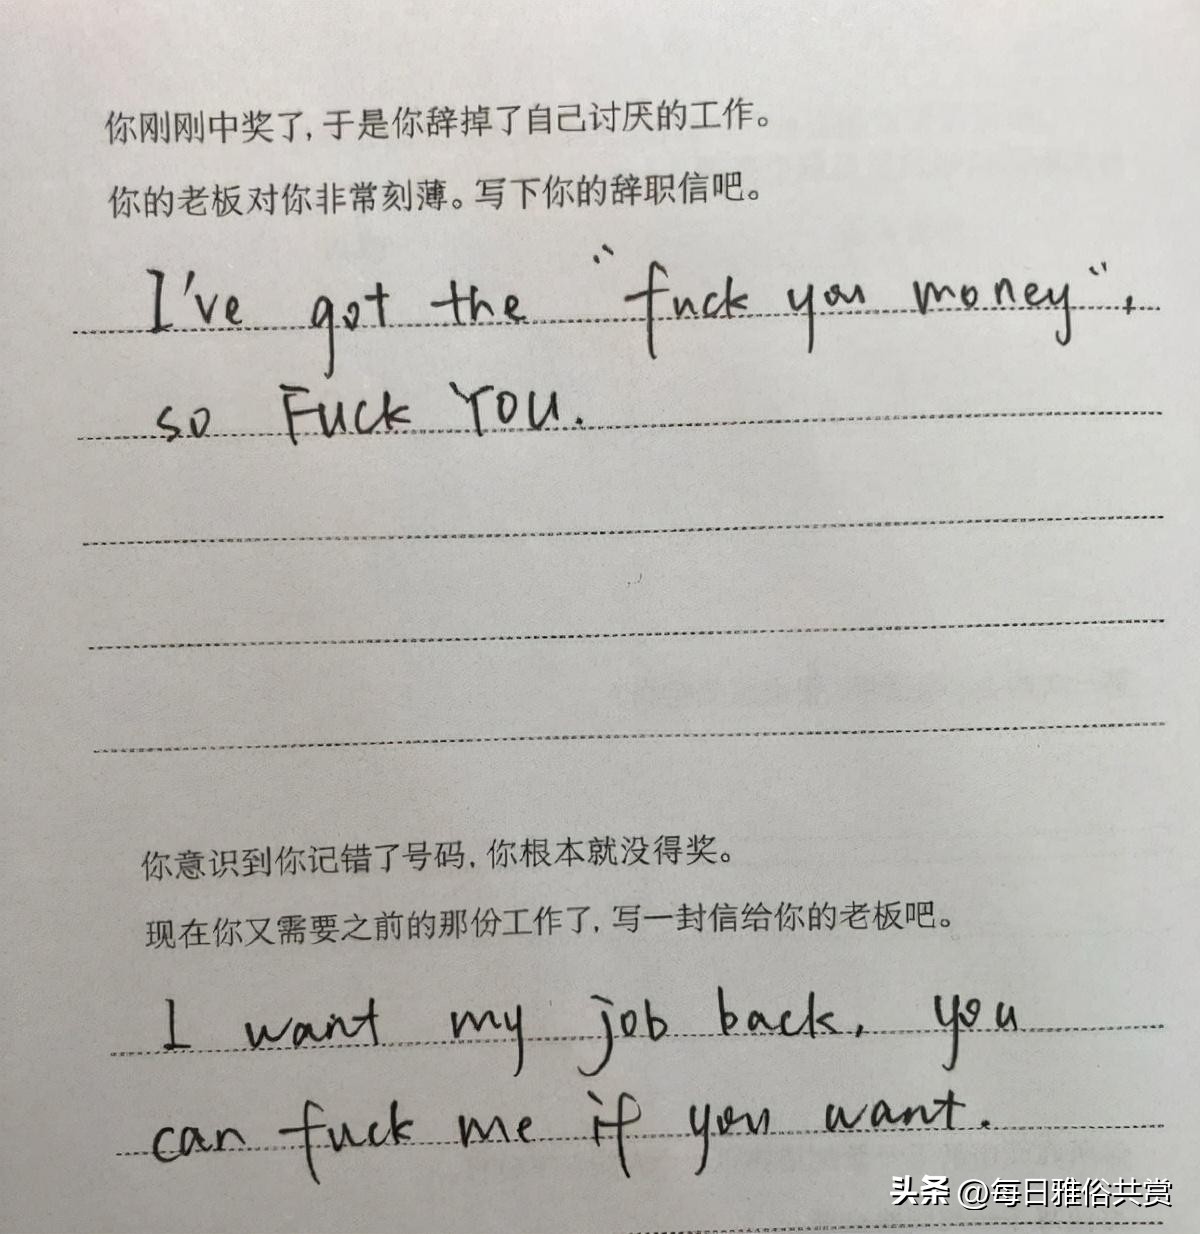 你刚刚中奖了，于是你辞掉了自己讨厌的工作。
你的老板对你非常刻薄。写下你的辞职信吧。
I've got the "fuck you money",
so FUCK YOU.
你意识到你记错了号码，你根本就没得奖。
现在你又需要之前的那份工作了，写一封信给你的老板吧。
I want my job back, you
can fuck me if you want.
头条 @每日雅俗共赏